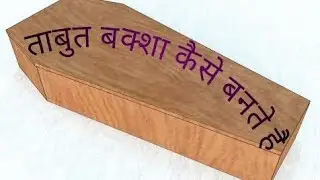 ताबुत बक्शा कैसे बनते है